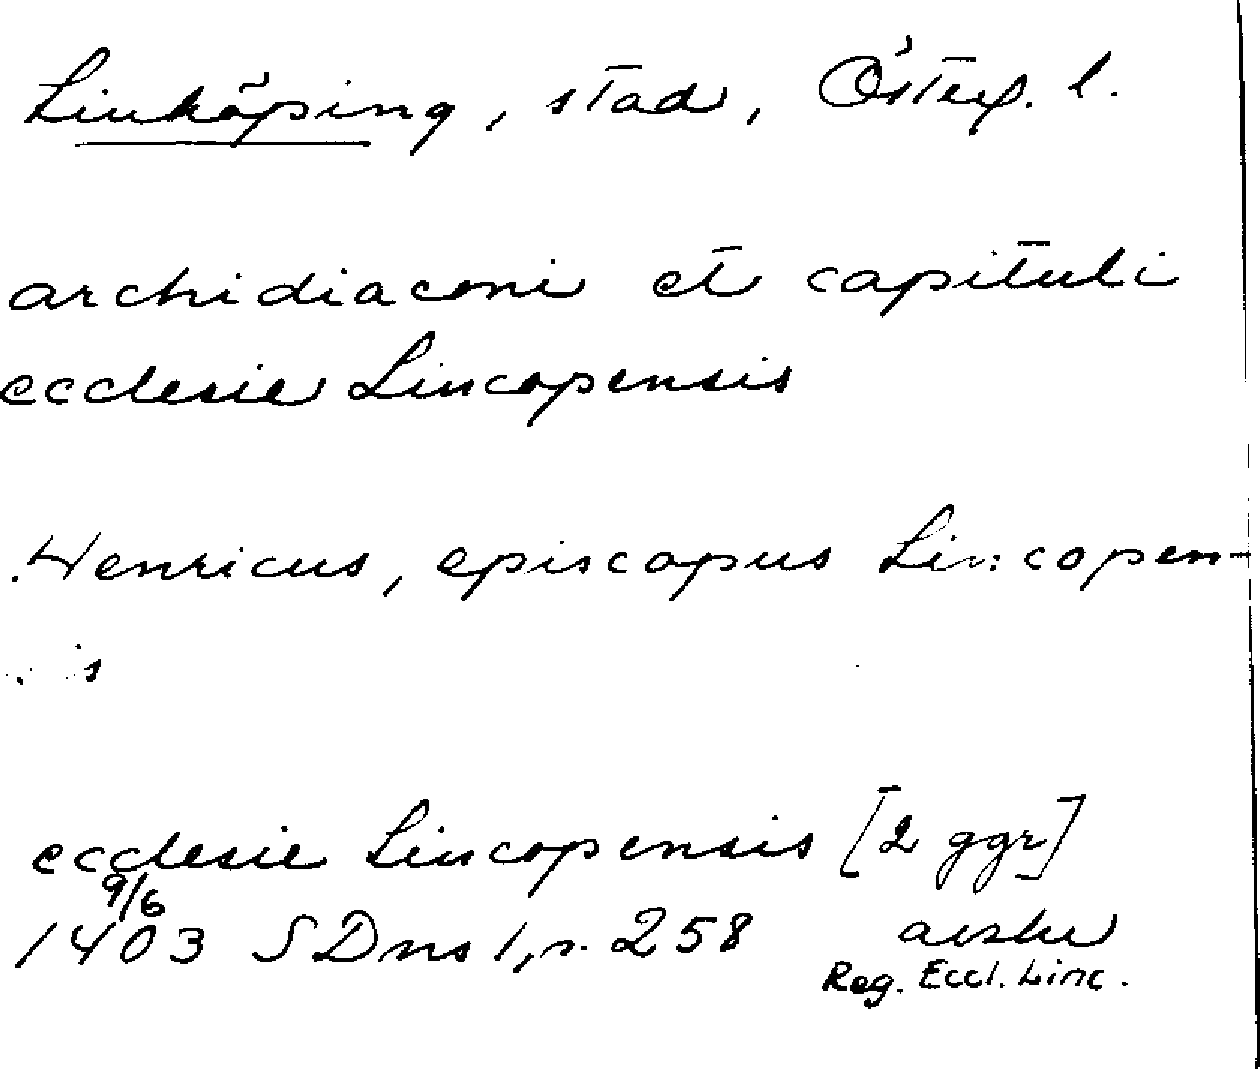 Linköping, stad, Östergl.
archidiaconi et capituli
ecclesie Lincopensis
Henricus, episcopus Lincopen-
is
ecclesie Lincopensis [2 ggr]
9/6
1403 SDns 1, s. 258 avskr
Reg. Eccl. Linc.